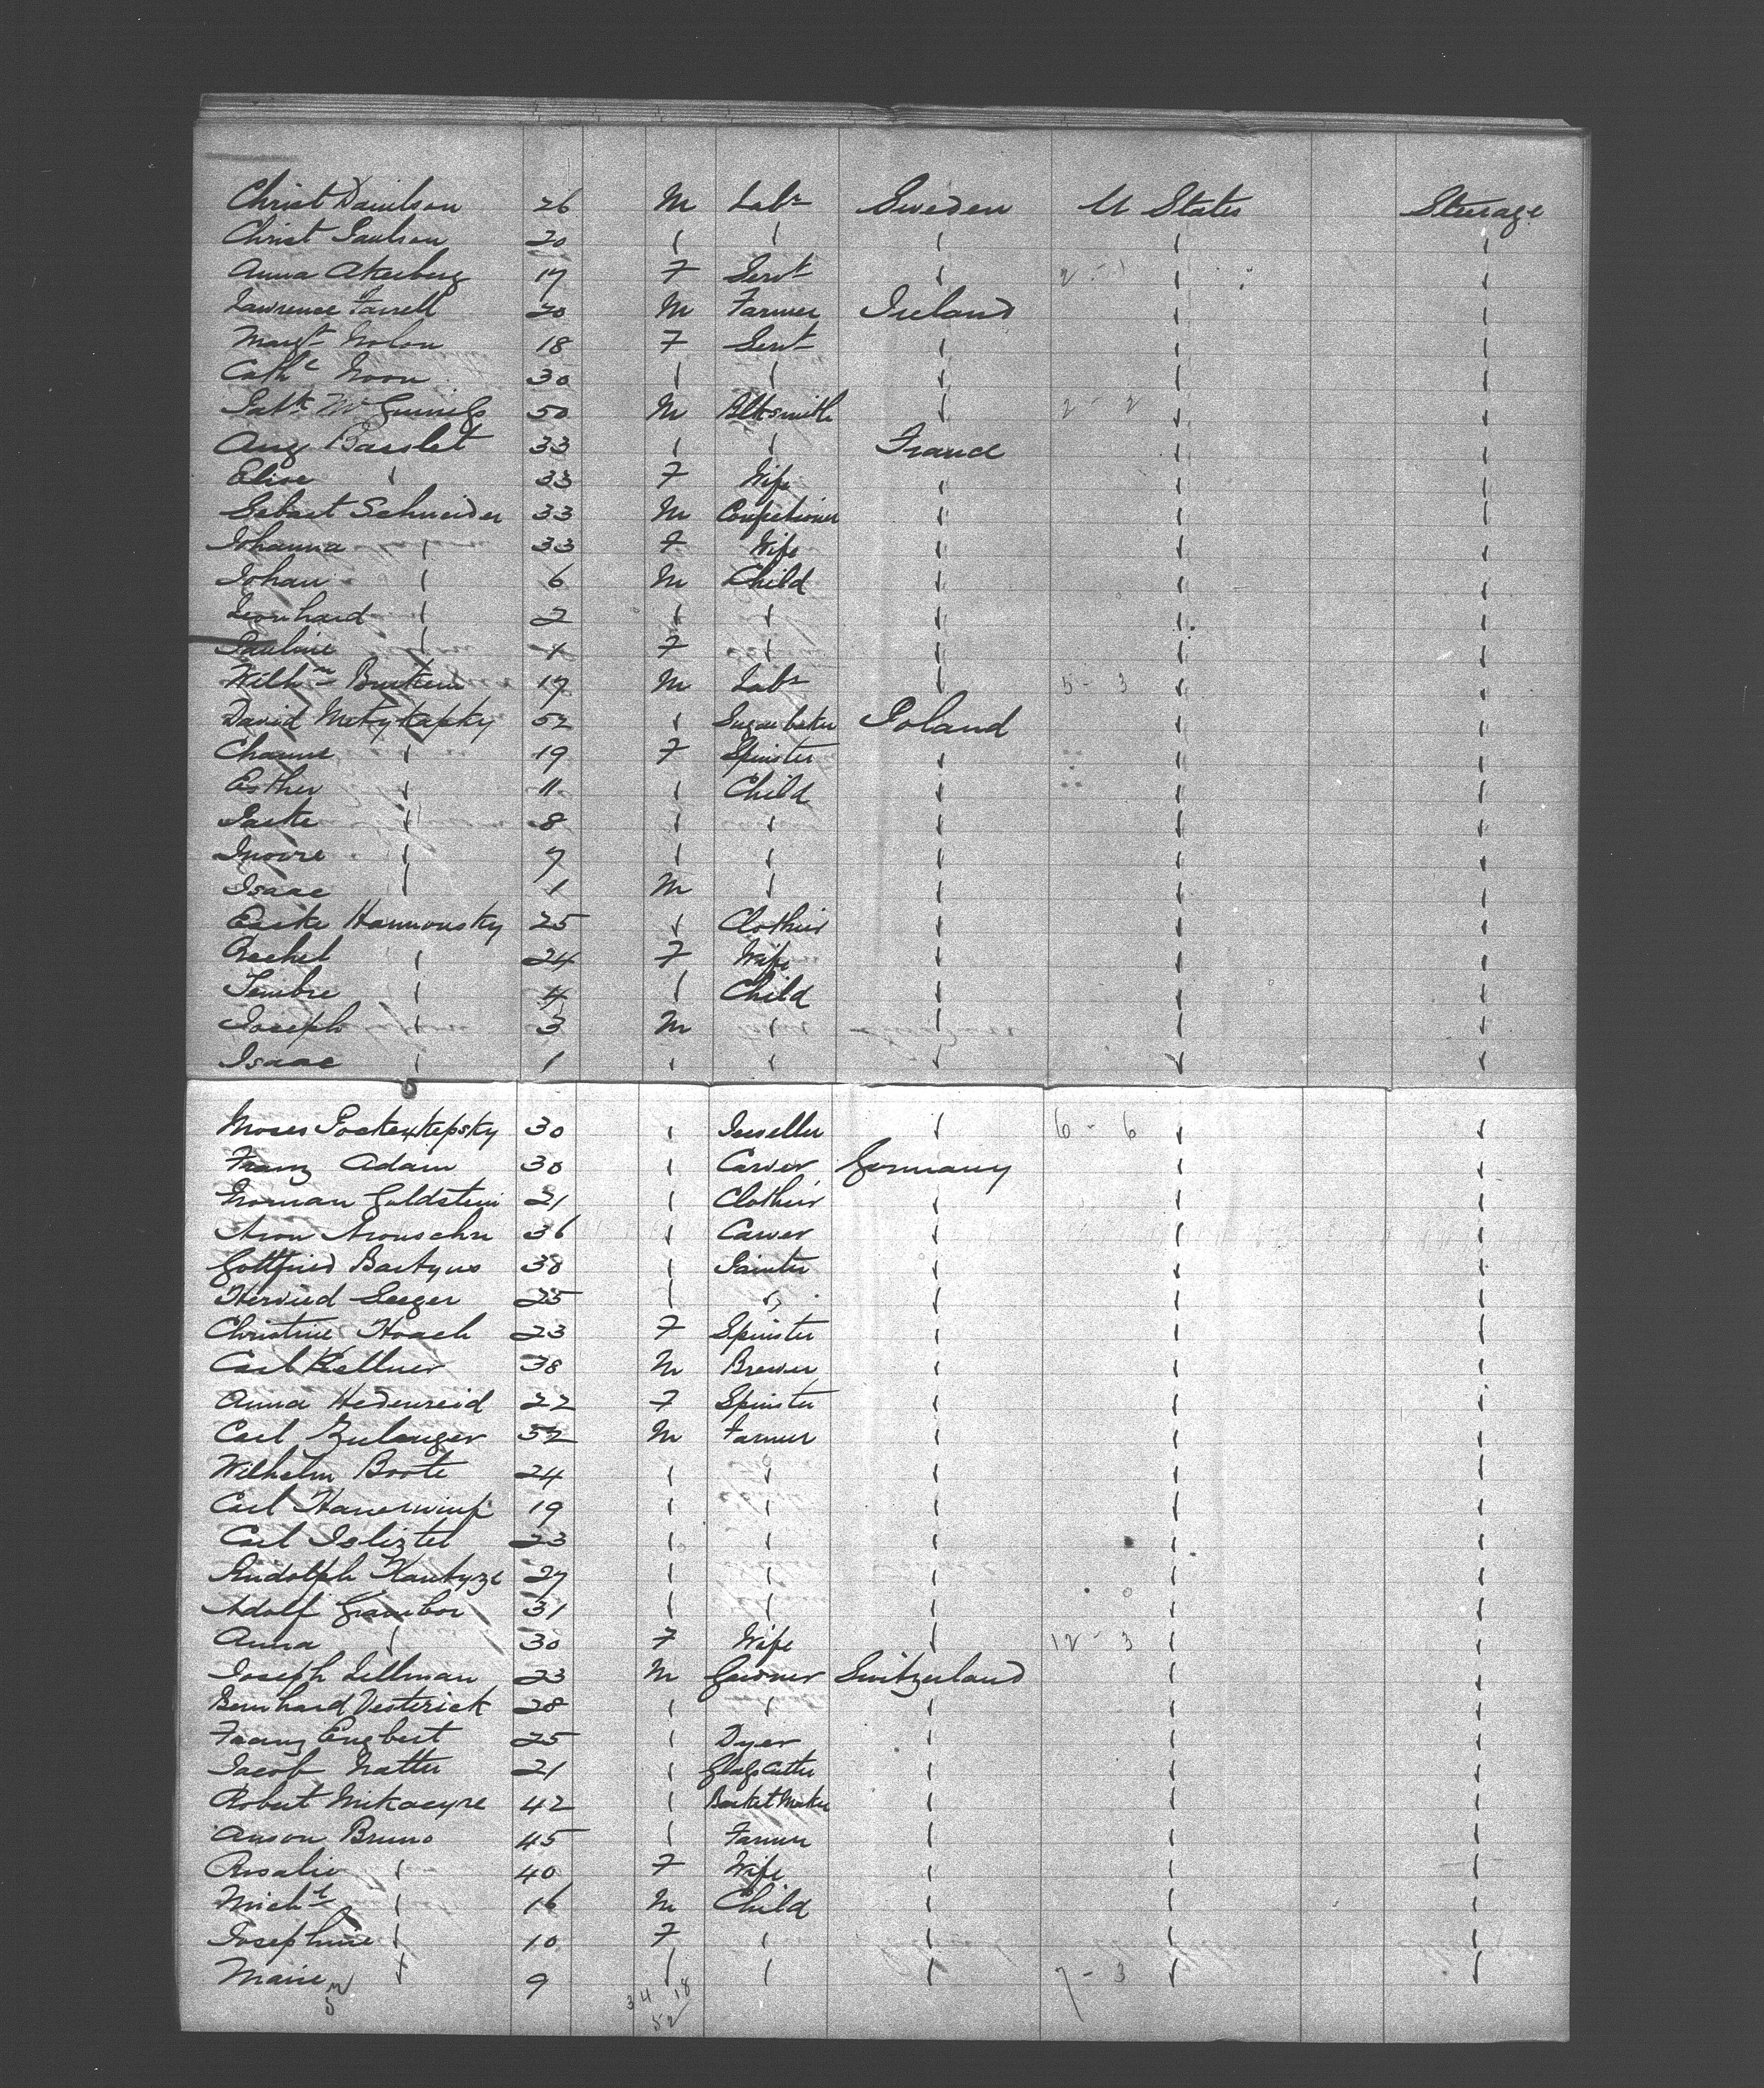 Christ Danilson 26 M Labr Sweden U States Steerage
Christ Paulson 20 " " " " "
Anna Akerberg 17 F Servt " 2 - 1 " "
Lawrence Farrell 20 M Farmer Ireland " "
Margt Nolon 18 F Servt " " "
Cathe Noon 30 " " " " "
Patk McGuiniss 50 M Blksmith " 2 - 2 " "
Aug Basslet 33 " " France " "
Elise " 33 F Wife " " "
Gebart Schneider 33 M Confectioner " " "
Johanna " 33 F Wife " " "
Johan " 6 M Child " " "
Leonhard " 2 " " " " "
Pauline " F " " " "
Wilhm 17 M Labr " 5 - 3 " "
David 52 " Sugar baker Poland " "
" 19 F Spinster " " "
Esther " 11 " Child " " "
" 8 " " " " "
" 7 " " " " "
Isaac " 1 M " " " "
Hannonsky 25 " Clothier " " "
Rachel " 24 F Wife " " "
" 4 " Child " " "
Joseph " 3 M " " " "
Isaac " 1 " " " " "
Moses 30 " Jeweller " 6 - 6 " "
Franz Adam 30 " Carver Germany " "
Norman Goldstein 21 " Clothier " " "
Aron Aronsohn 36 " Carver " " "
Gottfried 38 " Painter " " "
Seeger 25 " " " " "
Christine Hoach 23 F Spinster " " "
Carl Kellner 38 M Brewer " " "
Anna Hedenreid 22 F Spinster " " "
Carl 52 M Farmer " " "
Wilhelm Boote 24 " " " " "
Carl 19 " " " " "
Carl 23 " " " " "
Rudolph 27 " " " " "
Adolf Grambor 31 " " " " "
Anna " 30 F Wife " 12 - 3 " "
Joseph Lillman 23 M Switzerland " "
Bernhard Vesterick 28 " " " " "
Franz Engbert 25 " Dyer " " "
Jacob Natter 21 " Glass Cutter " " "
Robert 42 " Basket Maker " " "
Anson Bruno 45 " Farmer " " "
Rosalie " 40 F Wife " " "
Michl " 16 M Child " " "
Josephine " 10 F " " " "
Marie " 9 " " " 7 - 3 " "
34 18
52